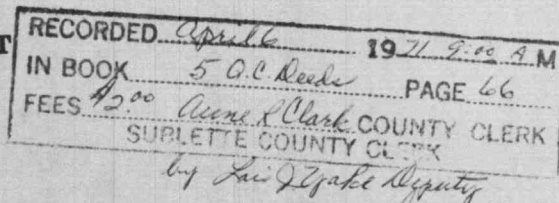 RECORDED April 6 1971 9:00 A M
IN BOOK 5 Q.C. Deeds PAGE 66
FEES $2.00 Anne R Clark COUNTY CLERK
SUBLETTE COUNTY CLERK
by Deputy